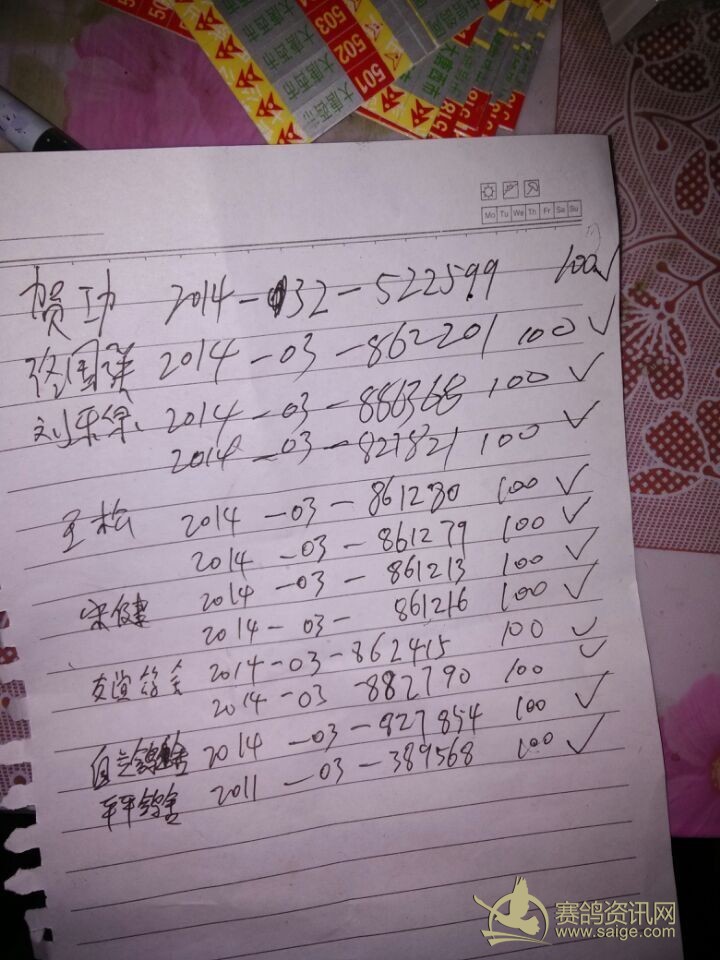 503
502
501
大唐西市
大唐西市
大唐西市
518
518
Mo Tu We Th Fr Sa Su
贺功 2014-032-522599 100✓
徐国强 2014-03-862201 100✓
刘 2014-03-886368 100✓
2014-03-827821 100✓
王松 2014-03-861280 100✓
2014-03-861279 100✓
宋健 2014-03-861213 100✓
2014-03-861216 100✓
友谊鸽舍 2014-03-862415 100✓
2014-03-882790 100✓
2014-03-827854 100✓
平平鸽舍 2011-03-389568 100✓
赛鸽资讯网
www.saige.com